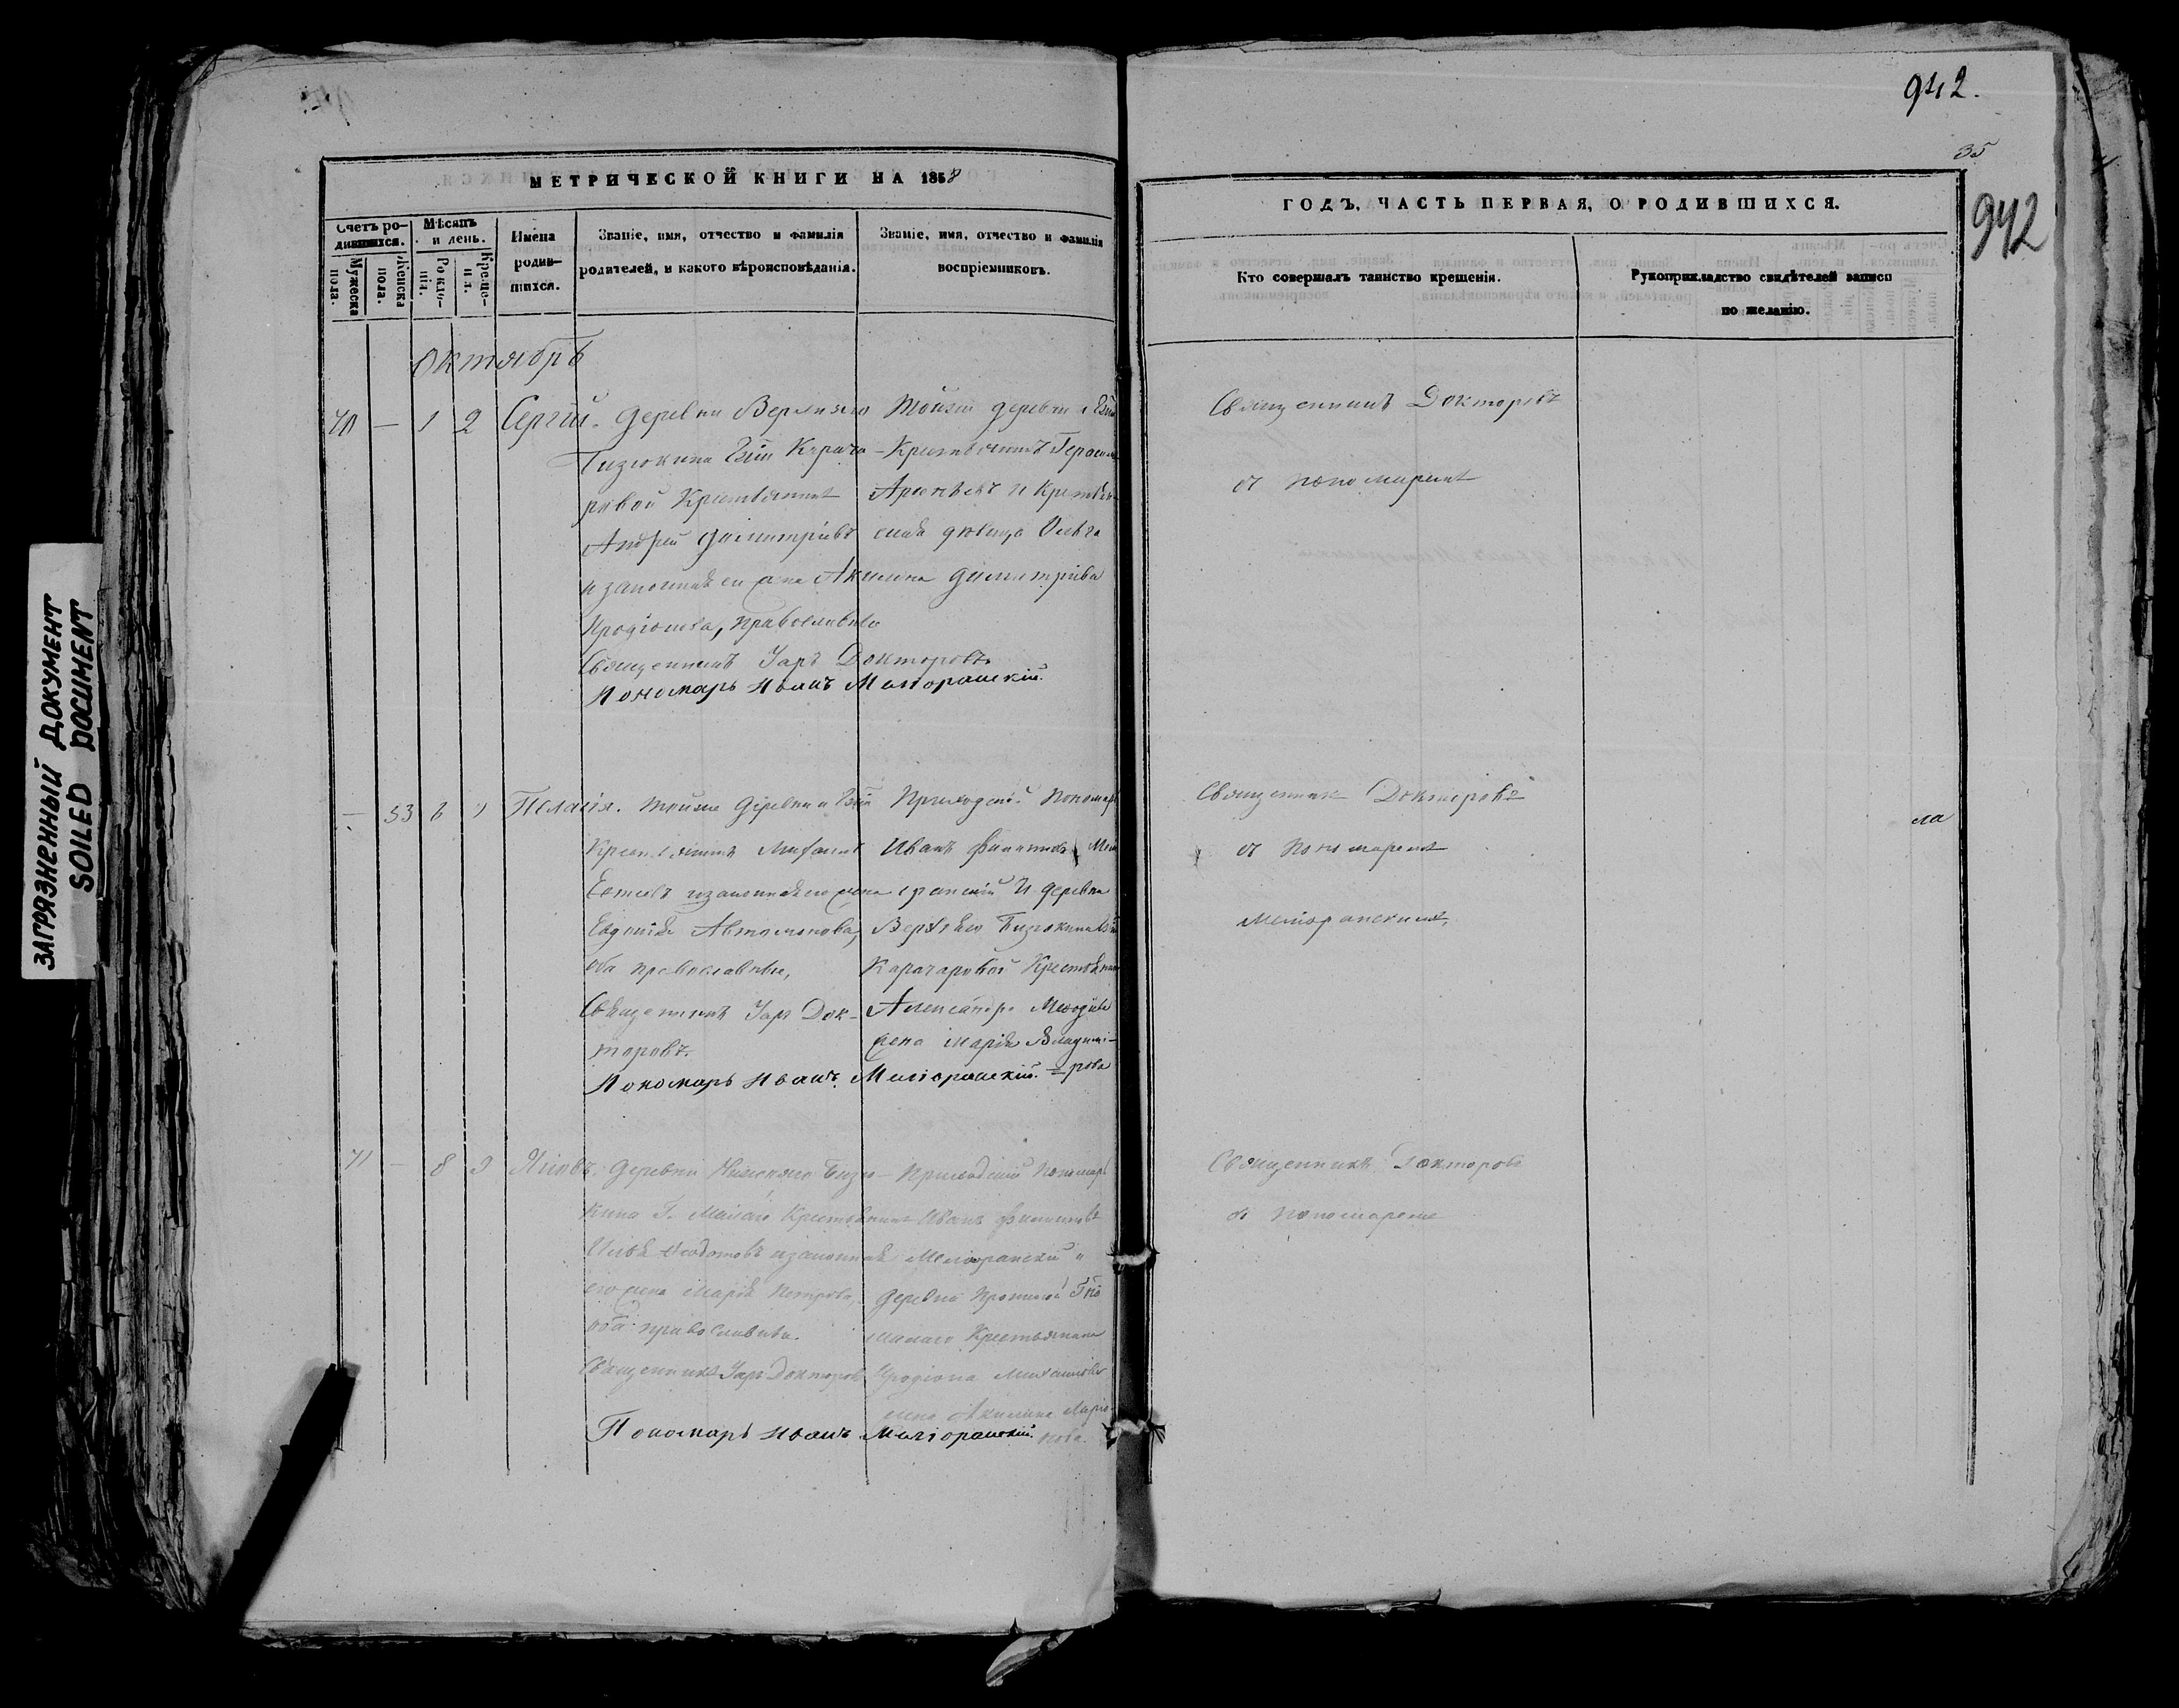 ЗАГРЯЗНЕННЫЙ ДОКУМЕНТ
SOILED DOCUMENT
МЕТРИЧЕСКОЙ КНИГИ НА 1858
Счетъ родившихся.
Мужеска пола.
Женска пола.
Мѣсяцъ и день.
Рожденія.
Крещенія.
Имена родившихся.
Званіе, имя, отчество и фамилія родителей, и какого вѣроисповѣданія.
Званіе, имя, отчество и фамилія воспріемниковъ.
Октябрь
70 — 1 2 Сергій.
Деревни Верхняго
Бизюкина Гжи Карача-
ровой Крестьянинъ
Андрей Димитріевъ
и законная его жена Акилина
Иродіонова, православные
Священникъ Уаръ Докторовъ
Пономарь Иванъ Меліоранскій.
Тойже деревни и Гжи
Крестьянинъ Герасимъ
и Крестьян-
ская дѣвица Ольга
Димитріева
— 53 8 9 Пелагія.
Тойже Деревни и Гжи
Крестьянинъ
и законная его жена
Евдокія Автомонова,
оба православные,
Священникъ Уаръ Док-
торовъ.
Пономарь Иванъ Меліоранскій.
Приходскій Пономарь
Иванъ Филипповъ Мелі
оранскій и деревни
Верхняго Бизюкина Гжи
Карачаровой Крестьянина
Александра
жена Марія Владими-
рова
71 — 8 9 Яковъ.
Деревни Нижняго Бизю-
кина Г. Крестьянинъ
Илья Ѳедотовъ и законная
его жена Марія Петрова,
оба православные.
Священникъ Уаръ Докторовъ
Пономарь Иванъ Меліоранскій.
Приходскій Пономарь
Иванъ Филипповъ
Меліоранскій и
деревни
Крестьянина
Иродіона
жена Акилина Ларіо-
нова.
942.
35
942
ГОДЪ, ЧАСТЬ ПЕРВАЯ, О РОДИВШИХСЯ.
Кто совершалъ таинство крещенія.
Рукоприкладство свидѣтелей записи по желанію.
Священникъ Докторовъ
съ пономаремъ
Священникъ Докторовъ
съ пономаремъ
Меліоранскимъ,
ла
Священникъ Докторовъ
съ пономаремъ